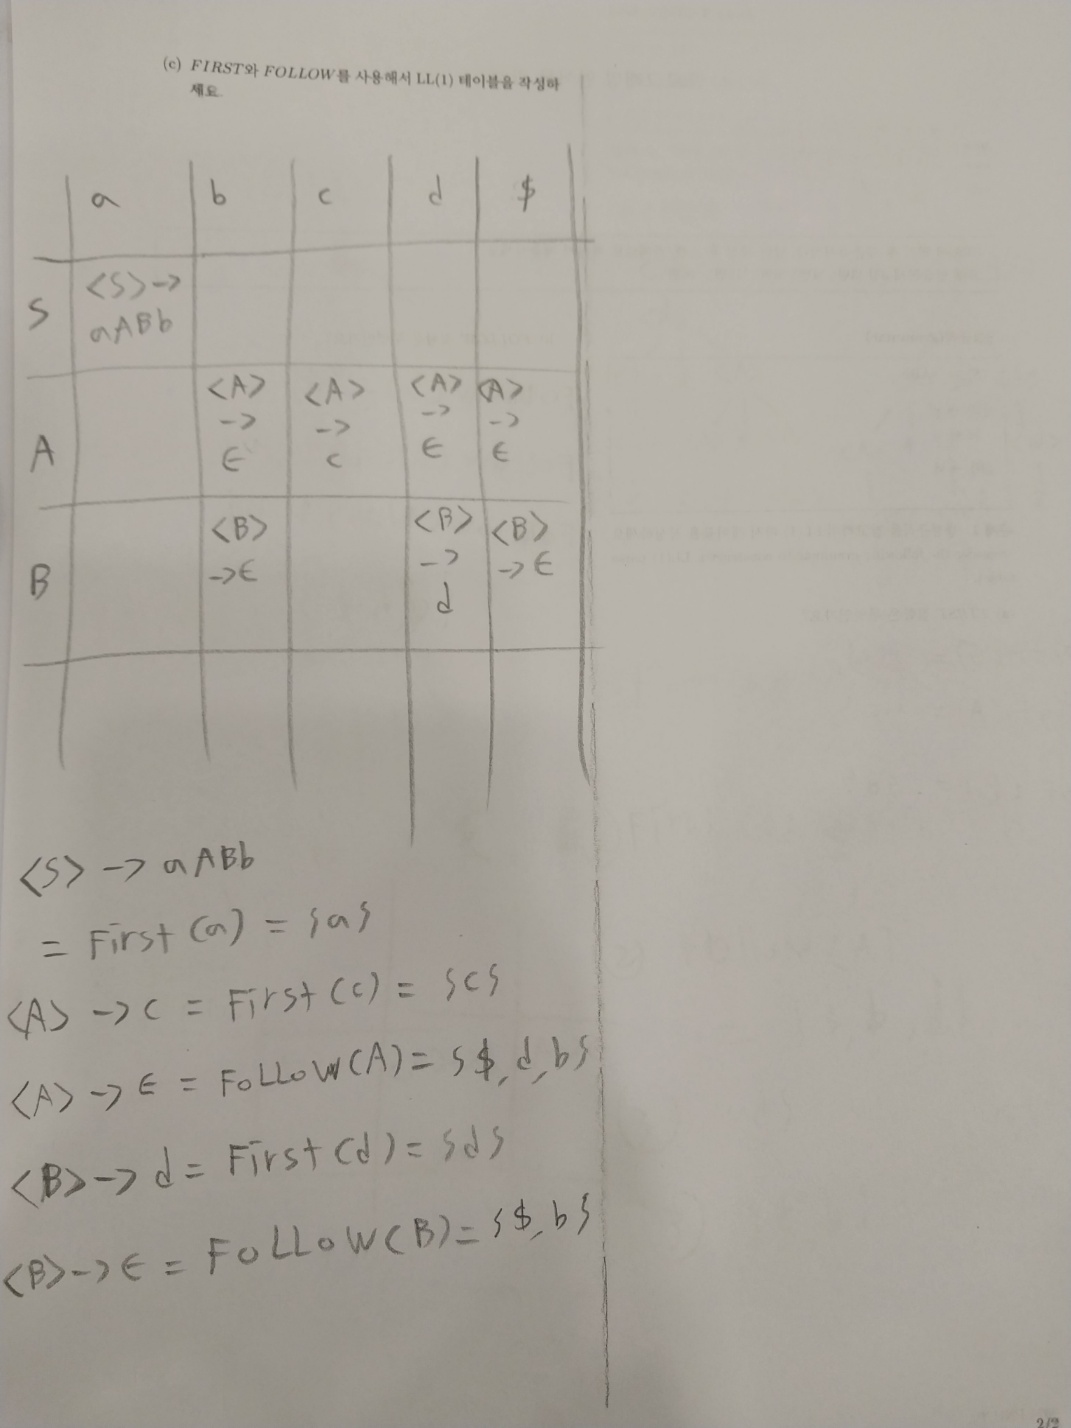 (c) FIRST와 FOLLOW를 사용해서 LL(1) 테이블을 작성하
세요
a b c d $
S <S> -> aABb
A <A> -> ϵ <A> -> c <A> -> ϵ <A> -> ϵ
B <B> -> ϵ <B> -> d <B> -> ϵ
<S> -> aABb
= First (a) = {a}
<A> -> c = First (c) = {c}
<A> -> ϵ = FOLLOW(A) = {$, d, b}
<B> -> d = First (d) = {d}
<B> -> ϵ = FOLLOW(B) = {$, b}
2/2